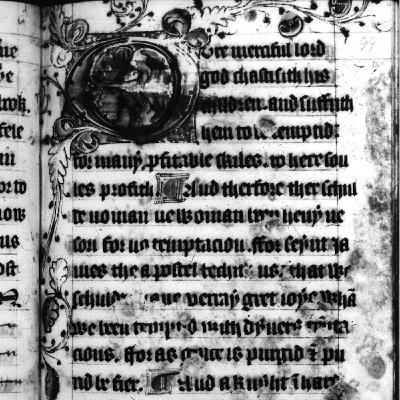 Oure merciful lord
god chastisith his
children. and suffrith
hem to be temptid:
for many pfitable skiles. to here sou
les profith And therfore ther schul
de no man ne woman ben heuy ne
sori for no temptacion. ffor seynt Ja
mes the apostel techith us. that we
schulde haue verray gret ioye whã
we been temptid with dyuers tẽpta
cions. ffor as is purgid ⁊ pu
rid be fier. And a knyght ĩ hard